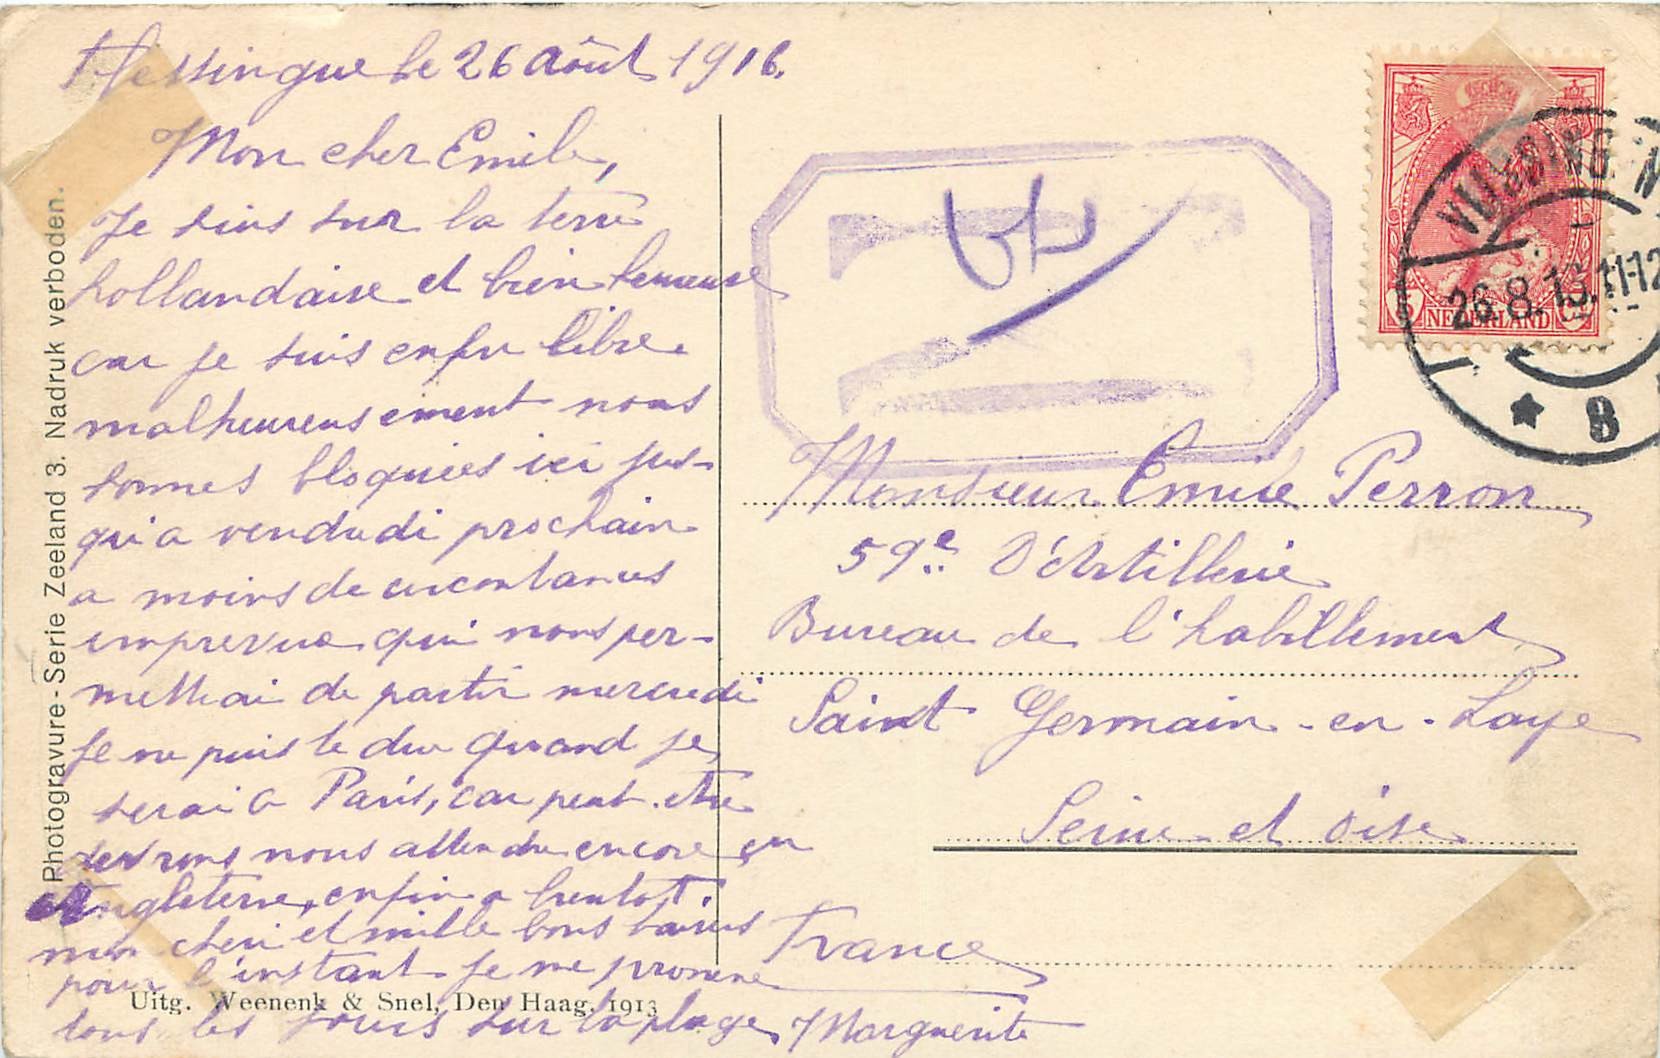 Flessingue le 26 Août 1916.
Mon cher Emile,
Je suis sur la terre
hollandaise et bien heureuse
car je suis enfin libre.
malheureusement nous
sommes bloquées ici jus-
qu'a vendredi prochain
a moins de circontances
imprevue qui nous per-
mettrai de partir mercredi
Je ne puis te dire quand je
serai a Paris, car peut-etre
devrons nous attendre encore en
Angleterre, enfin a bientot
mon cheri et mille bons baisers
pour l'instant je me promene
tous les jours sur la plage Marguerite
Monsieur Emile Perron
59e D'Artillerie
Bureau de l'habillement
Saint Germain-en-Laye
Seine et Oise
France
Photogravure-Serie Zeeland 3. Nadruk verboden.
Uitg. Weenenk & Snel, Den Haag, 1913
NEDERLAND
VLISSINGEN
26.8.16.11-12
8